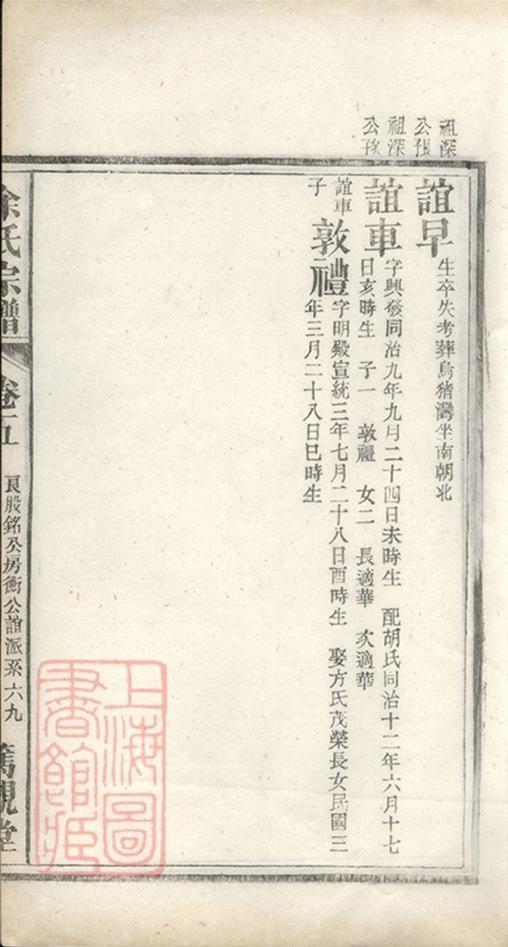 祖深
公派
祖深
公
誼早
生卒失考葬烏猪灣坐南朝北
誼車
字興發同治九年九月二十四日未時生 配胡氏同治十二年六月十七
日亥時生 子一 敦禮 女二 長適華 次適華
誼車
子
敦禮
字明殿宣統三年七月二十八日酉時生 娶方氏茂榮長女民國三
年三月二十八日巳時生
余氏宗譜
卷五
良股銘公房衡公誼派系六九
篤親堂
上海圖
書館藏